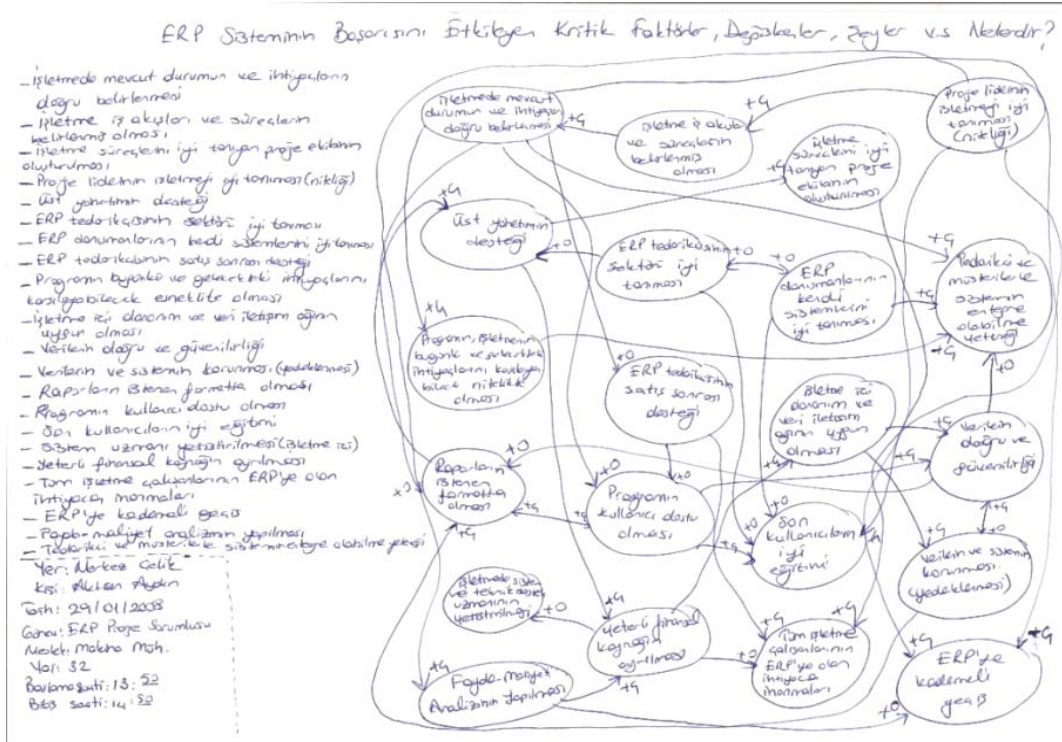 ERP Sisteminin Başarısını Etkileyen Kritik Faktörler, Değişkenler, Şeyler v.s Nelerdir?
- İşletmede mevcut durumun ve ihtiyaçların
doğru belirlenmesi
- İşletme iş akışları ve süreçlerin
belirlenmiş olması
- İşletme süreçlerini iyi tanıyan proje ekibinin
oluşturulması
- Proje liderinin işletmeyi iyi tanıması (niteliği)
- Üst yönetimin desteği
- ERP tedarikçisinin sektörü iyi tanıması
- ERP danışmanlarının kendi sistemlerini iyi tanıması
- ERP tedarikçisinin satış sonrası desteği
- Programın bugünkü ve gelecekteki ihtiyaçlarını
karşılayabilecek olması
- İşletme içi donanım ve veri iletişim ağının
uygun olması
- Verilerin doğru ve güvenilirliği
- Verilerin ve sistemin korunması (yedeklenmesi)
- Raporların istenen formatta olması
- Programın kullanıcı dostu olması
- Son kullanıcıların iyi eğitimi
- Sistem uzmanı yetiştirilmesi (işletme içi)
- Yeterli finansal kaynağın ayrılması
- Tüm işletme çalışanlarının ERP'ye olan
ihtiyaca inanmaları
- ERP'ye kademeli geçiş
- Fayda-maliyet analizinin yapılması
- Tedarikçi ve müşterilerle sistemin entegre olabilme yeteneği
Yer: Merkez Çelik
Kişi: Aydın
Tarih: 29/01/2008
Görev: ERP Proje Sorumlusu
Meslek: Makina Müh.
Yaş: 32
Başlama saati: 13:50
Bitiş saati: 14:50
İşletmede mevcut
durumun ve ihtiyaçların
doğru belirlenmesi
+4
İşletme iş akışları
ve süreçlerin
belirlenmiş
olması
+4
Proje liderinin
işletmeyi iyi
tanıması
(niteliği)
İşletme
süreçlerini iyi
tanıyan proje
ekibinin
oluşturulması
+4
+4
Üst yönetimin
desteği
+0
ERP tedarikçisinin
sektörü iyi
tanıması
+0
+0
ERP
danışmanlarının
kendi
sistemlerini
iyi tanıması
+4
+4
Tedarikçi ve
müşterilerle
sistemin
entegre
olabilme
yeteneği
+4
+0
+4
Programın, işletmenin
bugünkü ve gelecekteki
ihtiyaçlarını karşılaya
bilecek nitelikte
olması
+0
ERP tedarikçisinin
satış sonrası
desteği
İşletme içi
donanım ve
veri iletişim
ağının uygun
olması
+4
+4
Verilerin
doğru ve
güvenilirliği
+0
Raporların
istenen
formatta
olması
+0
+4
+4
+0
+0
Programın
kullanıcı dostu
olması
+4
+0
+0
Son
kullanıcıların
iyi
eğitimi
+4
+4
+0
Verilerin ve sistemin
korunması
(yedeklenmesi)
İşletmede sistem
ve teknik destek
uzmanının
yetiştirilmesi
+0
+4
Yeterli finansal
kaynağın
ayrılması
+4
+0
+4
+4
Tüm işletme
çalışanlarının
ERP'ye olan
ihtiyaca
inanmaları
+4
Fayda-Maliyet
Analizinin Yapılması
+4
+4
+0
ERP'ye
kademeli
geçiş